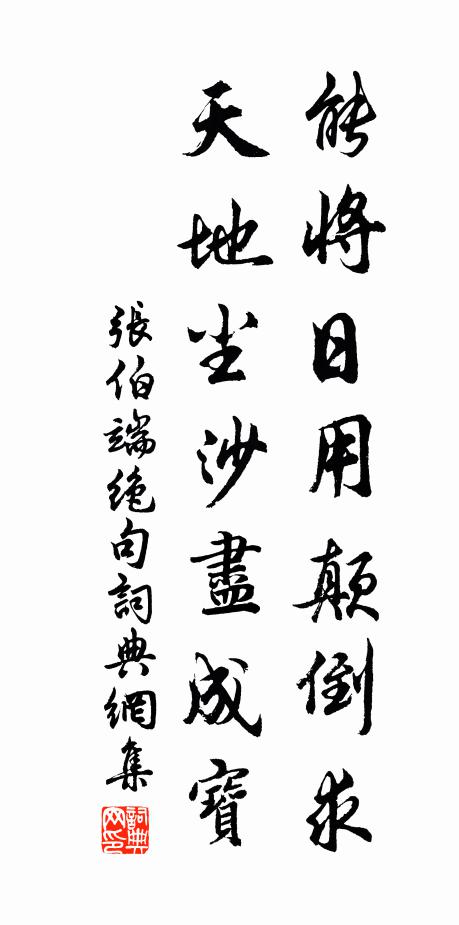 能將日用顛倒求
天地尘沙盡成寶
張伯端絕句詞典網集
詞典网印